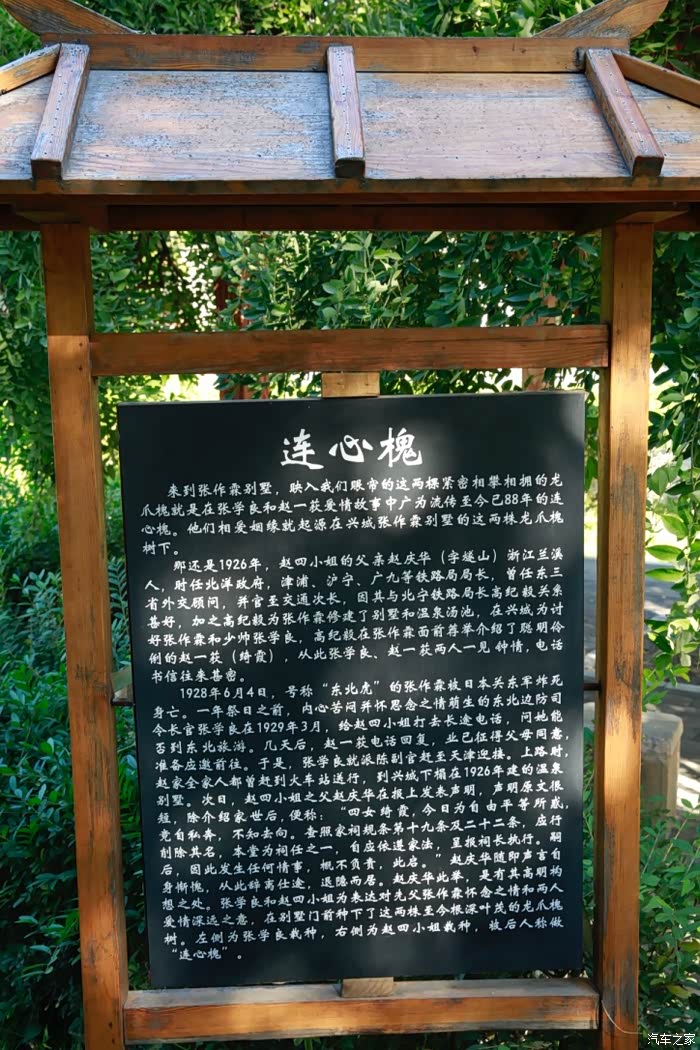 连心槐
来到张作霖别墅，映入我们眼帘的这两棵紧密相攀相拥的龙
爪槐就是在张学良和赵一荻爱情故事中广为流传至今已88年的连
心槐。他们相爱姻缘就起源在兴城张作霖别墅的这两株龙爪槐
树下。
那还是1926年，赵四小姐的父亲赵庆华（字燧山）浙江兰溪
人，时任北洋政府，津浦、沪宁、广九等铁路局局长，曾任东三
省外交顾问，并官至交通次长，因其与北宁铁路局长高纪毅关系
甚好，加之高纪毅为张作霖修建了别墅和温泉汤池，在兴城为讨
好张作霖和少帅张学良，高纪毅在张作霖面前荐举介绍了聪明伶
俐的赵一荻（绮霞），从此张学良、赵一荻两人一见钟情，电话
书信往来甚密。
1928年6月4日，号称“东北虎”的张作霖被日本关东军炸死
身亡。一年祭日之前，内心苦闷并怀思念之情萌生的东北边防司
令长官张学良在1929年3月，给赵四小姐打去长途电话，问她能
否到东北旅游。几天后，赵一荻电话回复，业已征得父母同意，
准备应邀前往。于是，张学良就派陈副官赶至天津迎接。上路时，
赵家全家人都曾赶到火车站送行，到兴城下榻在1926年建的温泉
别墅。次日，赵四小姐之父赵庆华在报上发表声明，声明原文很
短，除介绍家世后，便称：“四女绮霞，今日为自由平等所惑，
竟自私奔，不知去向。查照家祠规条第十九条及二十二条，应行
削除其名，本堂为祠任之一，自应依遵家法，呈报祠长执行。嗣
后，因此发生任何情事，概不负责，此启。”赵庆华随即声言自
身惭愧，从此辞离仕途，退隐而居。赵庆华此举，是有其高明构
想之处。张学良和赵四小姐为表达对先父张作霖怀念之情和两人
爱情深远之意，在别墅门前种下了这两株至今根深叶茂的龙爪槐
树。左侧为张学良栽种，右侧为赵四小姐栽种，被后人称做
“连心槐”。
汽车之家